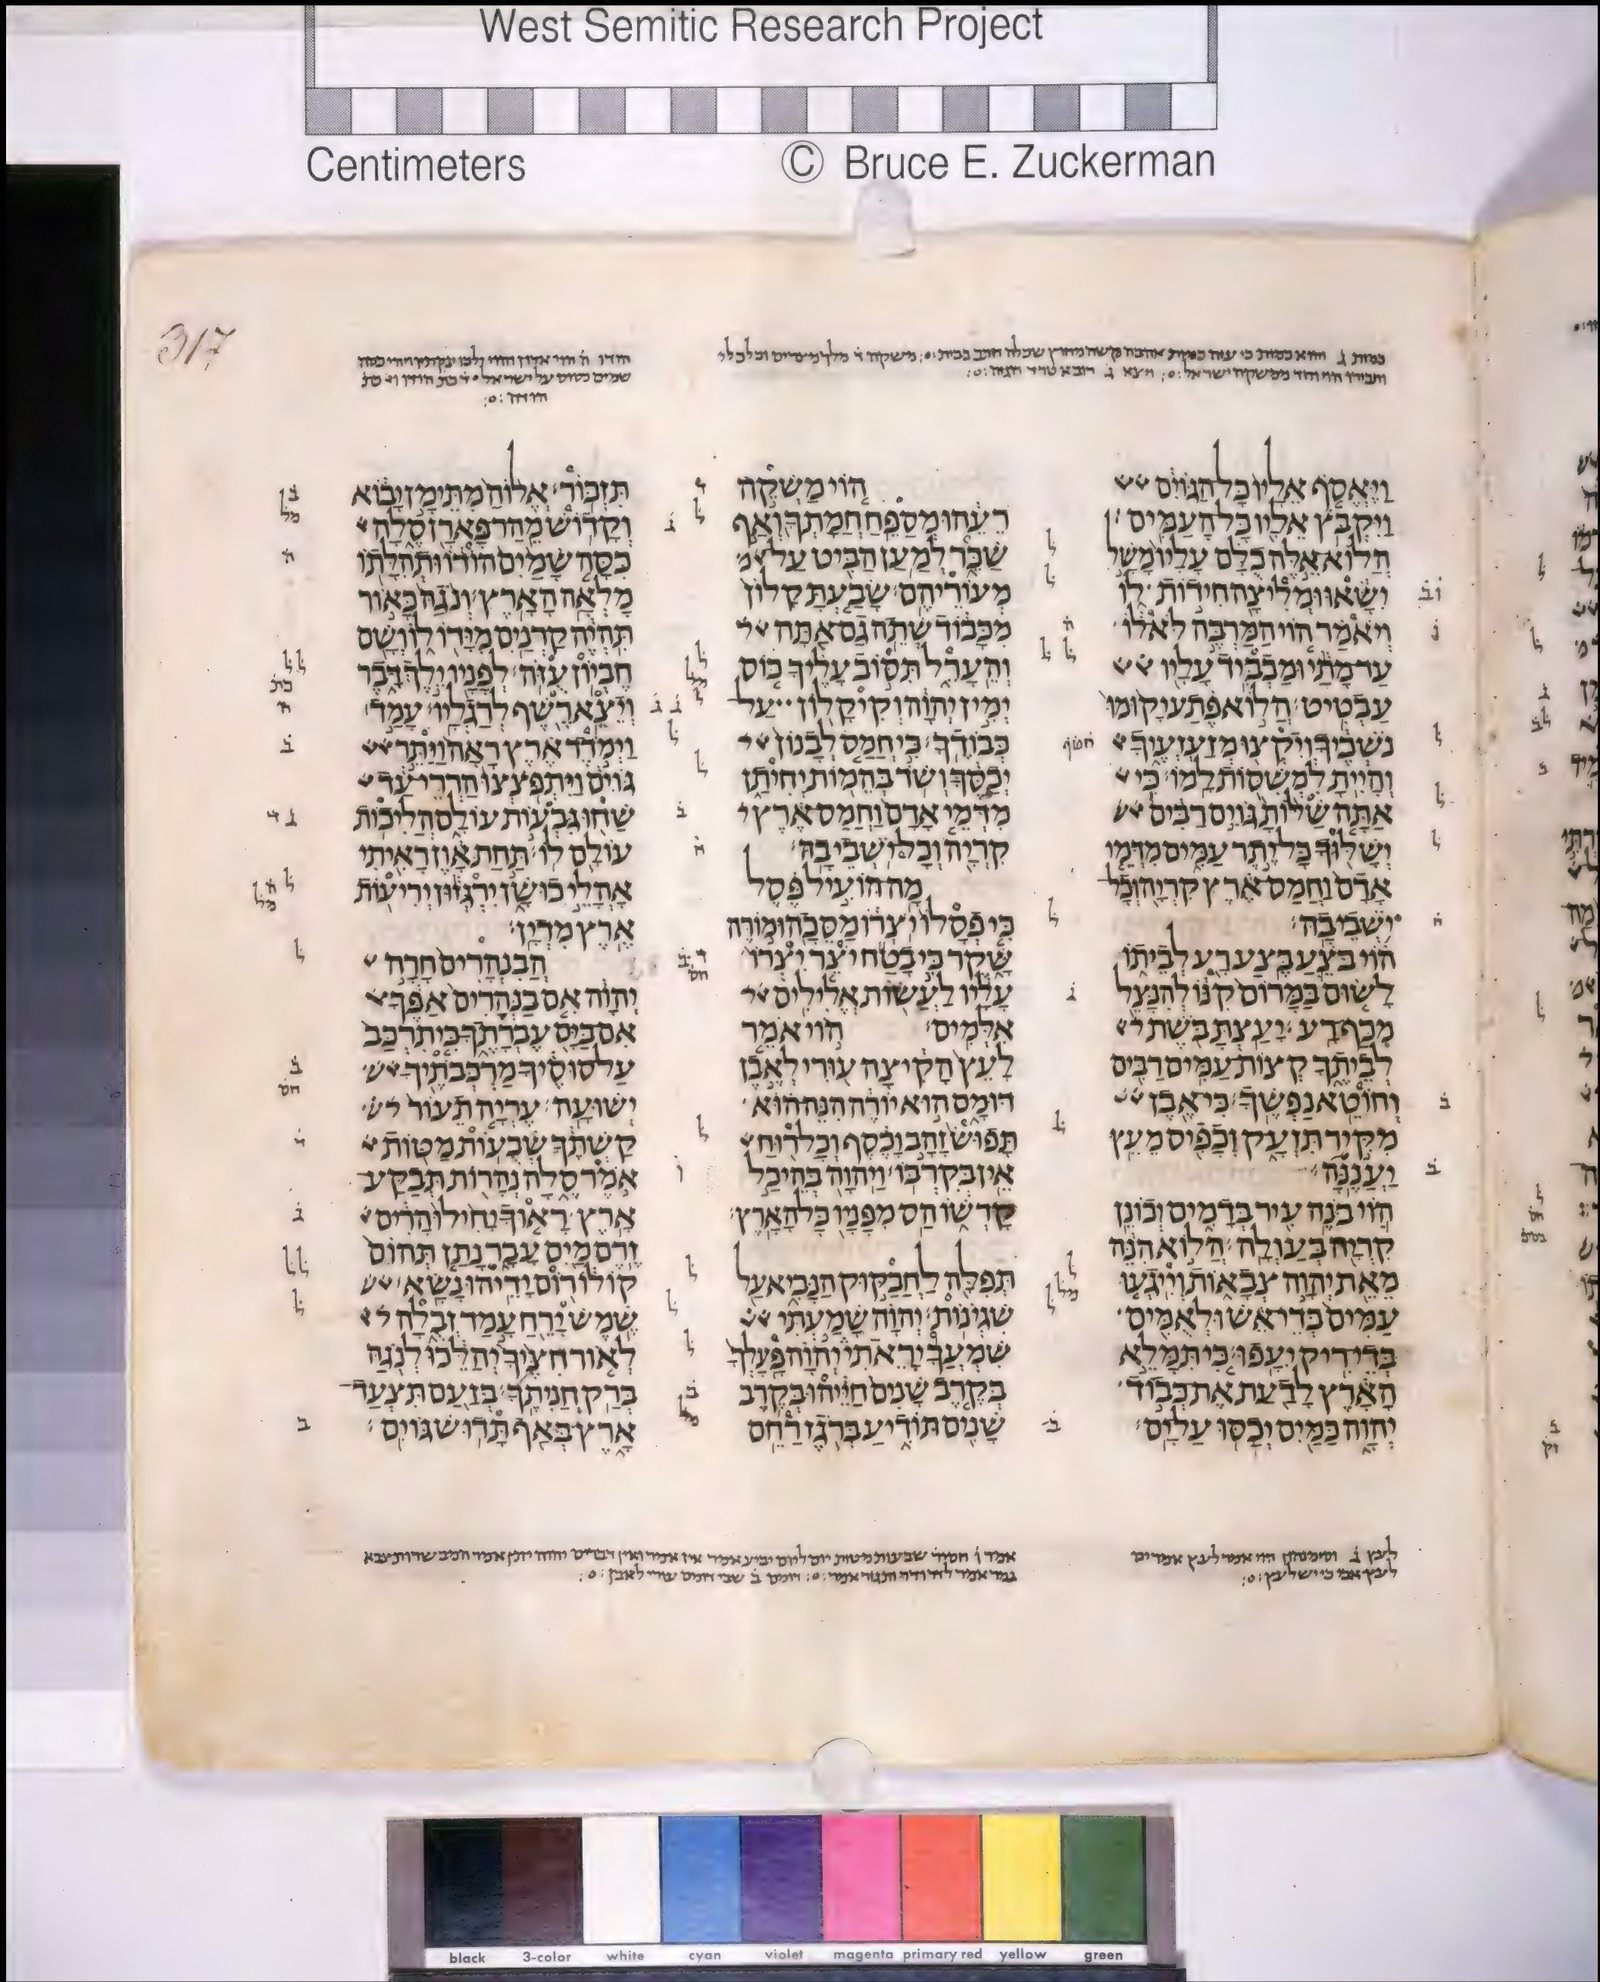 West Semitic Research Project
Centimeters © Bruce E. Zuckerman
317
וַיֶּאֱסֹף אֵלָיו כָּל הַגּוֹיִם
וַיִּקְבֹּץ אֵלָיו כָּל הָעַמִּים׃
הֲלוֹא אֵלֶּה כֻלָּם עָלָיו מָשָׁל
יִשָּׂאוּ וּמְלִיצָה חִידוֹת לוֹ
וְיֹאמַר הוֹי הַמַּרְבֶּה לֹּא לוֹ
עַד מָתַי וּמַכְבִּיד עָלָיו
עַבְטִיט׃ הֲלוֹא פֶתַע יָקוּמוּ
נֹשְׁכֶיךָ וְיִקְצוּ מְזַעְזְעֶיךָ
וְהָיִיתָ לִמְשִׁסּוֹת לָמוֹ׃ כִּי
אַתָּה שַׁלּוֹתָ גּוֹיִם רַבִּים
יְשָׁלּוּךָ כָּל יֶתֶר עַמִּים מִדְּמֵי
אָדָם וַחֲמַס אֶרֶץ קִרְיָה וְכָל
יֹשְׁבֵי בָהּ׃
הוֹי בֹּצֵעַ בֶּצַע רָע לְבֵיתוֹ
לָשׂוּם בַּמָּרוֹם קִנּוֹ לְהִנָּצֵל
מִכַּף רָע׃ יָעַצְתָּ בֹּשֶׁת
לְבֵיתֶךָ קְצוֹת עַמִּים רַבִּים
וְחוֹטֵא נַפְשֶׁךָ׃ כִּי אֶבֶן
מִקִּיר תִּזְעָק וְכָפִיס מֵעֵץ
יַעֲנֶנָּה׃
הוֹי בֹּנֶה עִיר בְּדָמִים וְכוֹנֵן
קִרְיָה בְּעַוְלָה׃ הֲלוֹא הִנֵּה
מֵאֵת יְהוָה צְבָאוֹת וְיִיגְעוּ
עַמִּים בְּדֵי אֵשׁ וּלְאֻמִּים
בְּדֵי רִיק יִעָפוּ׃ כִּי תִּמָּלֵא
הָאָרֶץ לָדַעַת אֶת כְּבוֹד
יְהוָה כַּמַּיִם יְכַסּוּ עַל יָם׃
הוֹי מַשְׁקֵה
רֵעֵהוּ מְסַפֵּחַ חֲמָתְךָ וְאַף
שַׁכֵּר לְמַעַן הַבִּיט עַל
מְעוֹרֵיהֶם׃ שָׂבַעְתָּ קָלוֹן
מִכָּבוֹד שְׁתֵה גַם אַתָּה
וְהֵעָרֵל תִּסּוֹב עָלֶיךָ כּוֹס
יְמִין יְהוָה וְקִיקָלוֹן עַל
כְּבוֹדֶךָ׃ כִּי חֲמַס לְבָנוֹן
יְכַסֶּךָּ וְשֹׁד בְּהֵמוֹת יְחִיתַן
מִדְּמֵי אָדָם וַחֲמַס אֶרֶץ
קִרְיָה וְכָל יֹשְׁבֵי בָהּ׃
מָה הוֹעִיל פֶּסֶל
כִּי פְסָלוֹ יֹצְרוֹ מַסֵּכָה וּמוֹרֶה
שָּׁקֶר כִּי בָטַח יֹצֵר יִצְרוֹ
עָלָיו לַעֲשׂוֹת אֱלִילִים
אִלְּמִים׃ הוֹי אֹמֵר
לָעֵץ הָקִיצָה עוּרִי לְאֶבֶן
דּוּמָם הוּא יוֹרֶה הִנֵּה הוּא
תָּפוּשׂ זָהָב וָכֶסֶף וְכָל רוּחַ
אֵין בְּקִרְבּוֹ׃ וַיהוָה בְּהֵיכַל
קָדְשׁוֹ הַס מִפָּנָיו כָּל הָאָרֶץ׃
תְּפִלָּה לַחֲבַקּוּק הַנָּבִיא עַל
שִׁגְיֹנוֹת׃ יְהוָה שָׁמַעְתִּי
שִׁמְעֲךָ יָרֵאתִי יְהוָה פָּעָלְךָ
בְּקֶרֶב שָׁנִים חַיֵּיהוּ בְּקֶרֶב
שָׁנִים תּוֹדִיעַ בְּרֹגֶז רַחֵם
תִּזְכּוֹר׃ אֱלוֹהַ מִתֵּימָן יָבוֹא
וְקָדוֹשׁ מֵהַר פָּארָן סֶלָה
כִּסָּה שָׁמַיִם הוֹדוֹ וּתְהִלָּתוֹ
מָלְאָה הָאָרֶץ׃ וְנֹגַהּ כָּאוֹר
תִּהְיֶה קַרְנַיִם מִיָּדוֹ לוֹ וְשָׁם
חֶבְיוֹן עֻזֹּה׃ לְפָנָיו יֵלֶךְ דָּבֶר
וְיֵצֵא רֶשֶׁף לְרַגְלָיו׃ עָמַד
וַיְמֹדֶד אֶרֶץ רָאָה וַיַּתֵּר
גּוֹיִם וַיִּתְפֹּצְצוּ הַרְרֵי עַד
שַׁחוּ גִּבְעוֹת עוֹלָם הֲלִיכוֹת
עוֹלָם לוֹ׃ תַּחַת אָוֶן רָאִיתִי
אָהֳלֵי כוּשָׁן יִרְגְּזוּן יְרִיעוֹת
אֶרֶץ מִדְיָן׃
הֲבִנְהָרִים חָרָה
יְהוָה אִם בַּנְּהָרִים אַפֶּךָ
אִם בַּיָּם עֶבְרָתֶךָ כִּי תִרְכַּב
עַל סוּסֶיךָ מַרְכְּבֹתֶיךָ
יְשׁוּעָה׃ עֶרְיָה תֵעוֹר
קַשְׁתֶּךָ שְׁבֻעוֹת מַטּוֹת
אֹמֶר סֶלָה נְהָרוֹת תְּבַקַּע
אָרֶץ׃ רָאוּךָ יָחִילוּ הָרִים
זֶרֶם מַיִם עָבָר נָתַן תְּהוֹם
קוֹלוֹ רוֹם יָדֵיהוּ נָשָׂא׃
שֶׁמֶשׁ יָרֵחַ עָמַד זְבֻלָה
לְאוֹר חִצֶּיךָ יְהַלֵּכוּ לְנֹגַהּ
בְּרַק חֲנִיתֶךָ׃ בְּזַעַם תִּצְעַד
אָרֶץ בְּאַף תָּדוּשׁ גּוֹיִם׃
לעץ ג וסימנהון הוי אמר לעץ אמרים
אמר ו חסיר שבועות מטות יום ליום יביע אמר אין אמר ואין דברים יהוה יתן אמר
גמר אמר לדר ודר ונגזר אמר
black 3-color white cyan violet magenta primary red yellow green